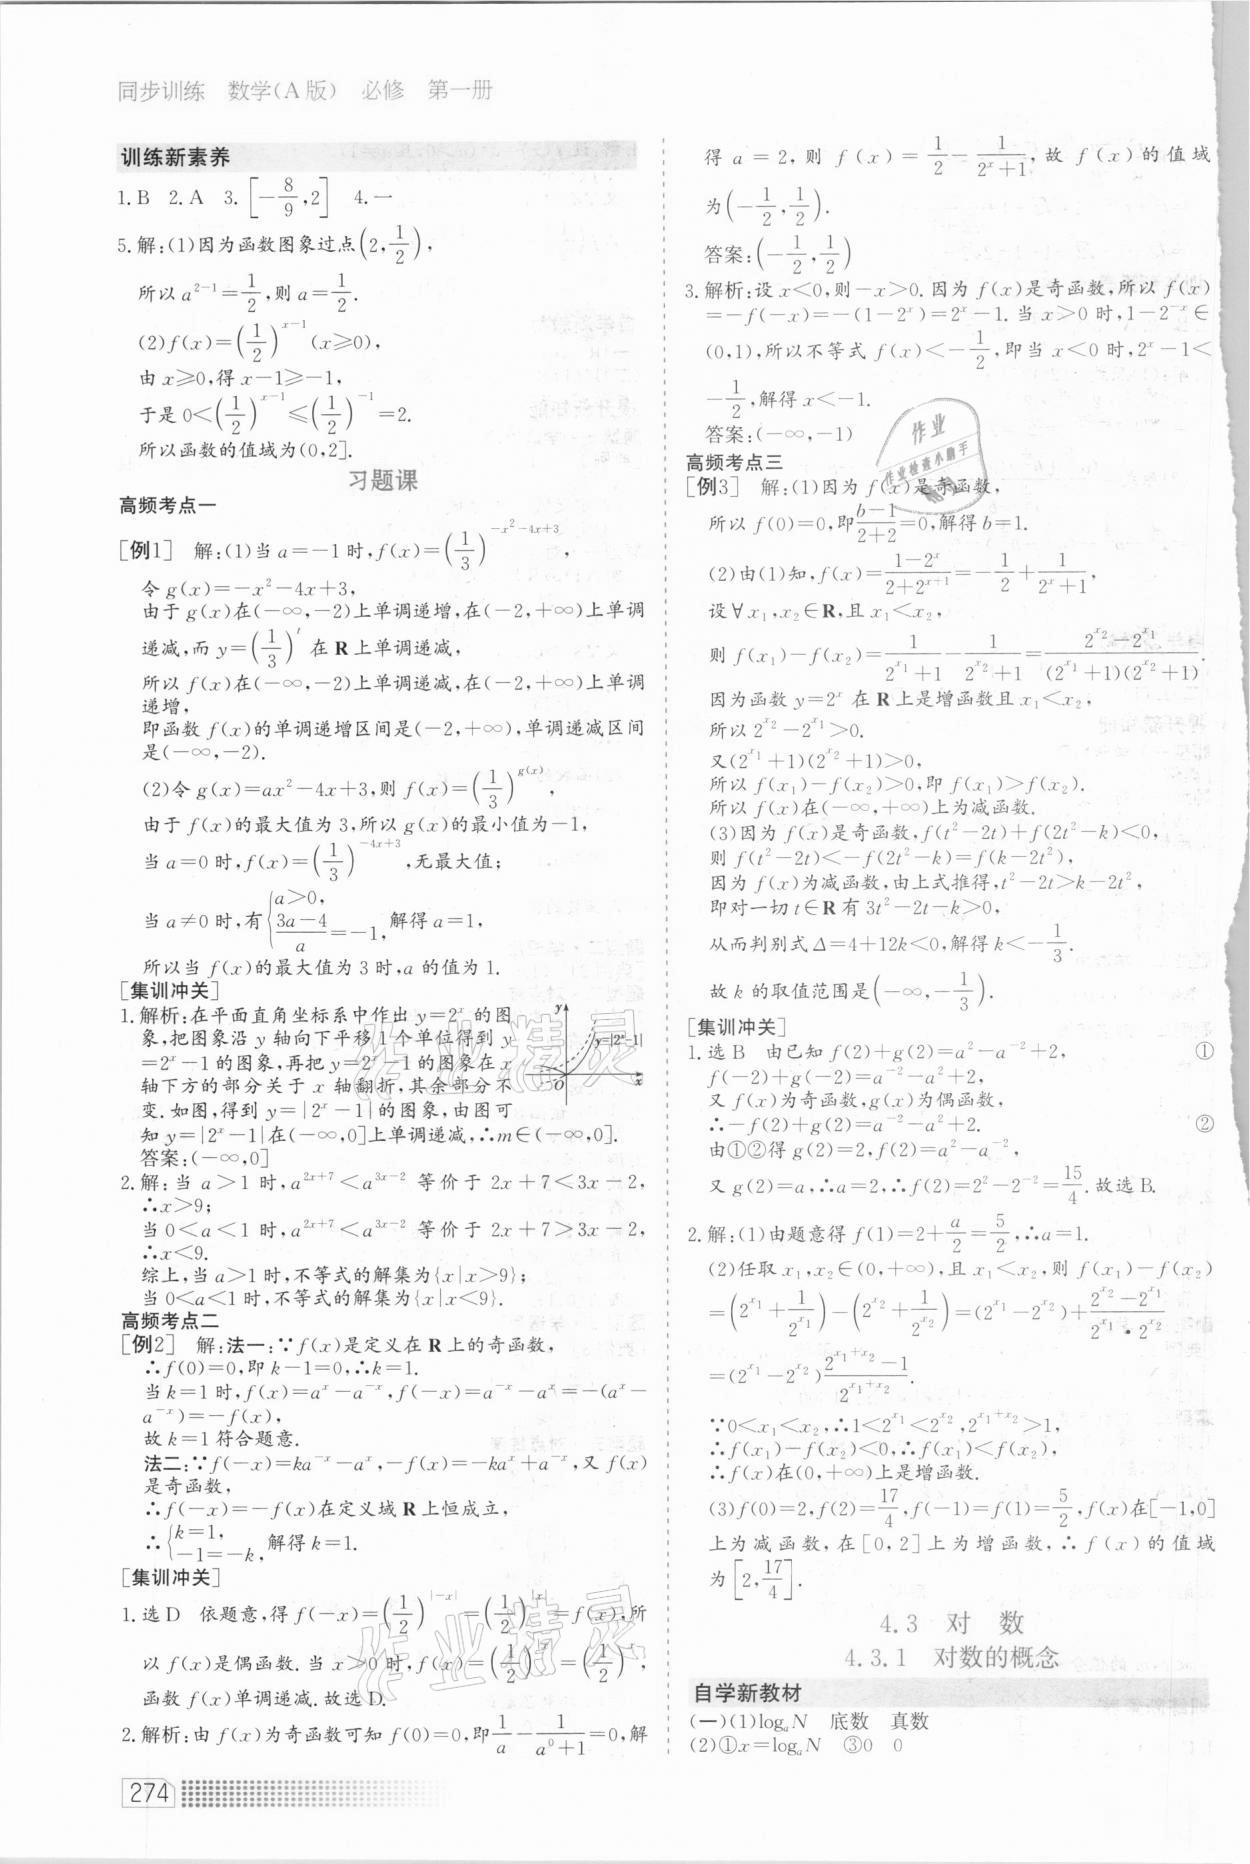 同步训练 数学(A版) 必修 第一册
训练新素养
1.B 2.A 3.[-8/9,2] 4.一
5.解:(1)因为函数图象过点(2,1/2),
所以 a^{2-1}=1/2,则 a=1/2.
(2)f(x)=(1/2)^{x-1}(x≥0),
由 x≥0,得 x-1≥-1,
于是 0<(1/2)^{x-1}≤(1/2)^{-1}=2.
所以函数的值域为(0,2].
习题课
高频考点一
[例1] 解:(1)当 a=-1 时,f(x)=(1/3)^{-x²-4x+3},
令 g(x)=-x²-4x+3,
由于 g(x)在(-∞,-2)上单调递增,在(-2,+∞)上单调
递减,而 y=(1/3)^t 在 R 上单调递减,
所以 f(x)在(-∞,-2)上单调递减,在(-2,+∞)上单调
递增,
即函数 f(x)的单调递增区间是(-2,+∞),单调递减区间
是(-∞,-2).
(2)令 g(x)=ax²-4x+3,则 f(x)=(1/3)^{g(x)},
由于 f(x)的最大值为 3,所以 g(x)的最小值为-1,
当 a=0 时,f(x)=(1/3)^{-4x+3},无最大值;
当 a≠0 时,有{a>0, (3a-4)/a=-1, 解得 a=1,
所以当 f(x)的最大值为 3 时,a 的值为 1.
[集训冲关]
1.解析:在平面直角坐标系中作出 y=2^x 的图
象,把图象沿 y 轴向下平移 1 个单位得到 y
=2^x-1 的图象,再把 y=2^x-1 的图象在 x
轴下方的部分关于 x 轴翻折,其余部分不
变.如图,得到 y=|2^x-1|的图象,由图可
知 y=|2^x-1|在(-∞,0]上单调递减,∴m∈(-∞,0].
y
y=|2^x-1|
O
x
答案:(-∞,0]
2.解:当 a>1 时,a^{2x+7}<a^{3x-2} 等价于 2x+7<3x-2,
∴x>9;
当 0<a<1 时,a^{2x+7}<a^{3x-2} 等价于 2x+7>3x-2,
∴x<9.
综上,当 a>1 时,不等式的解集为{x|x>9};
当 0<a<1 时,不等式的解集为{x|x<9}.
高频考点二
[例2] 解:法一:∵f(x)是定义在 R 上的奇函数,
∴f(0)=0,即 k-1=0,∴k=1.
当 k=1 时,f(x)=a^x-a^{-x},f(-x)=a^{-x}-a^x=-(a^x-
a^{-x})=-f(x),
故 k=1 符合题意.
法二:∵f(-x)=ka^{-x}-a^x,-f(x)=-ka^x+a^{-x},又 f(x)
是奇函数,
∴f(-x)=-f(x)在定义域 R 上恒成立,
∴{k=1, -1=-k, 解得 k=1.
[集训冲关]
1.选 D 依题意,得 f(-x)=(1/2)^{|-x|}=(1/2)^{|x|}=f(x),所
以 f(x)是偶函数.当 x>0 时,f(x)=(1/2)^{|x|}=(1/2)^x,
函数 f(x)单调递减.故选 D.
2.解析:由 f(x)为奇函数可知 f(0)=0,即1/a-1/(a^0+1)=0,解
274
得 a=2,则 f(x)=1/2-1/(2^x+1),故 f(x)的值域
为(-1/2,1/2).
答案:(-1/2,1/2)
3.解析:设 x<0,则-x>0.因为 f(x)是奇函数,所以 f(x)
=-f(-x)=-(1-2^x)=2^x-1.当 x>0 时,1-2^{-x}∈
(0,1),所以不等式 f(x)<-1/2,即当 x<0 时,2^x-1<
-1/2,解得 x<-1.
答案:(-∞,-1)
高频考点三
[例3] 解:(1)因为 f(x)是奇函数,
所以 f(0)=0,即(b-1)/(2+2)=0,解得 b=1.
(2)由(1)知,f(x)=(1-2^x)/(2+2^{x+1})=-1/2+1/(2^x+1),
设∀x₁,x₂∈R,且 x₁<x₂,
则 f(x₁)-f(x₂)=1/(2^{x₁}+1)-1/(2^{x₂}+1)=(2^{x₂}-2^{x₁})/((2^{x₁}+1)(2^{x₂}+1)).
因为函数 y=2^x 在 R 上是增函数且 x₁<x₂,
所以 2^{x₂}-2^{x₁}>0.
又(2^{x₁}+1)(2^{x₂}+1)>0,
所以 f(x₁)-f(x₂)>0,即 f(x₁)>f(x₂).
所以 f(x)在(-∞,+∞)上为减函数.
(3)因为 f(x)是奇函数,f(t²-2t)+f(2t²-k)<0,
则 f(t²-2t)<-f(2t²-k)=f(k-2t²),
因为 f(x)为减函数,由上式推得,t²-2t>k-2t²,
即对一切 t∈R 有 3t²-2t-k>0,
从而判别式 Δ=4+12k<0,解得 k<-1/3.
故 k 的取值范围是(-∞,-1/3).
[集训冲关]
1.选 B 由已知 f(2)+g(2)=a²-a^{-2}+2, ①
f(-2)+g(-2)=a^{-2}-a²+2,
又 f(x)为奇函数,g(x)为偶函数,
∴-f(2)+g(2)=a^{-2}-a²+2. ②
由①②得 g(2)=2,f(2)=a²-a^{-2},
又 g(2)=a,∴a=2,∴f(2)=2²-2^{-2}=15/4.故选 B.
2.解:(1)由题意得 f(1)=2+a/2=5/2,∴a=1.
(2)任取 x₁,x₂∈(0,+∞),且 x₁<x₂,则 f(x₁)-f(x₂)
=(2^{x₁}+1/2^{x₁})-(2^{x₂}+1/2^{x₂})=(2^{x₁}-2^{x₂})+(2^{x₂}-2^{x₁})/(2^{x₁}·2^{x₂})
=(2^{x₁}-2^{x₂})(2^{x₁+x₂}-1)/2^{x₁+x₂}.
∵0<x₁<x₂,∴1<2^{x₁}<2^{x₂},2^{x₁+x₂}>1,
∴f(x₁)-f(x₂)<0,∴f(x₁)<f(x₂),
∴f(x)在(0,+∞)上是增函数.
(3)f(0)=2,f(2)=17/4,f(-1)=f(1)=5/2,f(x)在[-1,0]
上为减函数,在[0,2]上为增函数,∴f(x)的值域
为[2,17/4].
4.3 对 数
4.3.1 对数的概念
自学新教材
(一)(1)logₐN 底数 真数
(2)①x=logₐN ③0 0
作业
作业检查小助手
作业精灵
作业精灵